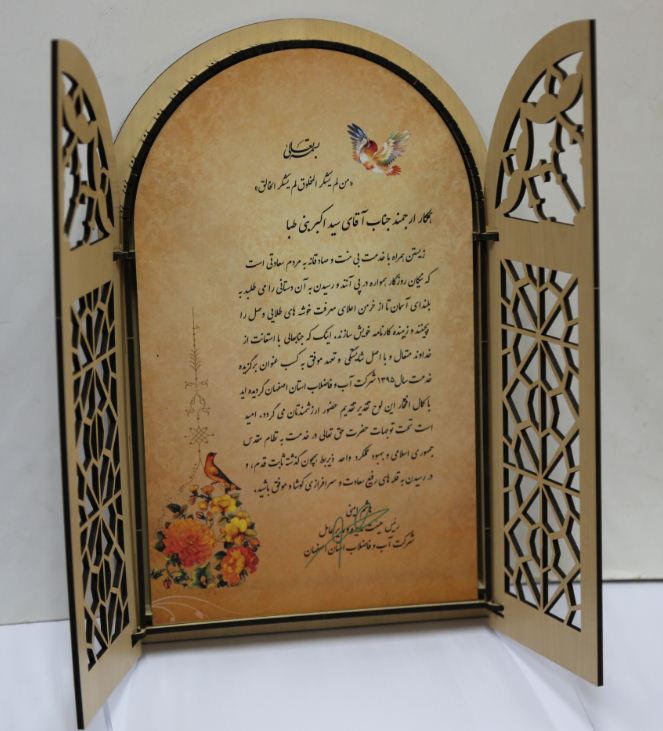 بسمه تعالی
«من لم یشکر المخلوق لم یشکر الخالق»
همکار ارجمند جناب آقای سید اکبر بنی طبا
زیستن همراه با خدمت بی منت و صادقانه به مردم سعادتی است
که نیکان روزگار همواره در پی آنند و رسیدن به آن دستانی را می طلبد به
بلندای آسمان تا از خرمن اعلای معرفت خوشه های طلایی وصل را
بچینند و زمینه کارنامه خویش سازند، اینک که جنابعالی با استعانت از
خداوند متعال و با اصل شایستگی و تعهد موفق به کسب عنوان برگزیده
خدمت سال ۱۳۹۵ شرکت آب و فاضلاب استان اصفهان گردیده اید
با کمال افتخار این لوح تقدیر تقدیم حضور ارزشمندتان می گردد. امید
است تحت توجهات حضرت حق تعالی در خدمت به نظام مقدس
جمهوری اسلامی و بهبود عملکرد واحد ذیربط همچون گذشته ثابت قدم، و
در رسیدن به قله های رفیع سعادت و سرافرازی کوشا و موفق باشید.
هاشم امینی
رئیس هیئت مدیره و مدیرعامل
شرکت آب و فاضلاب استان اصفهان